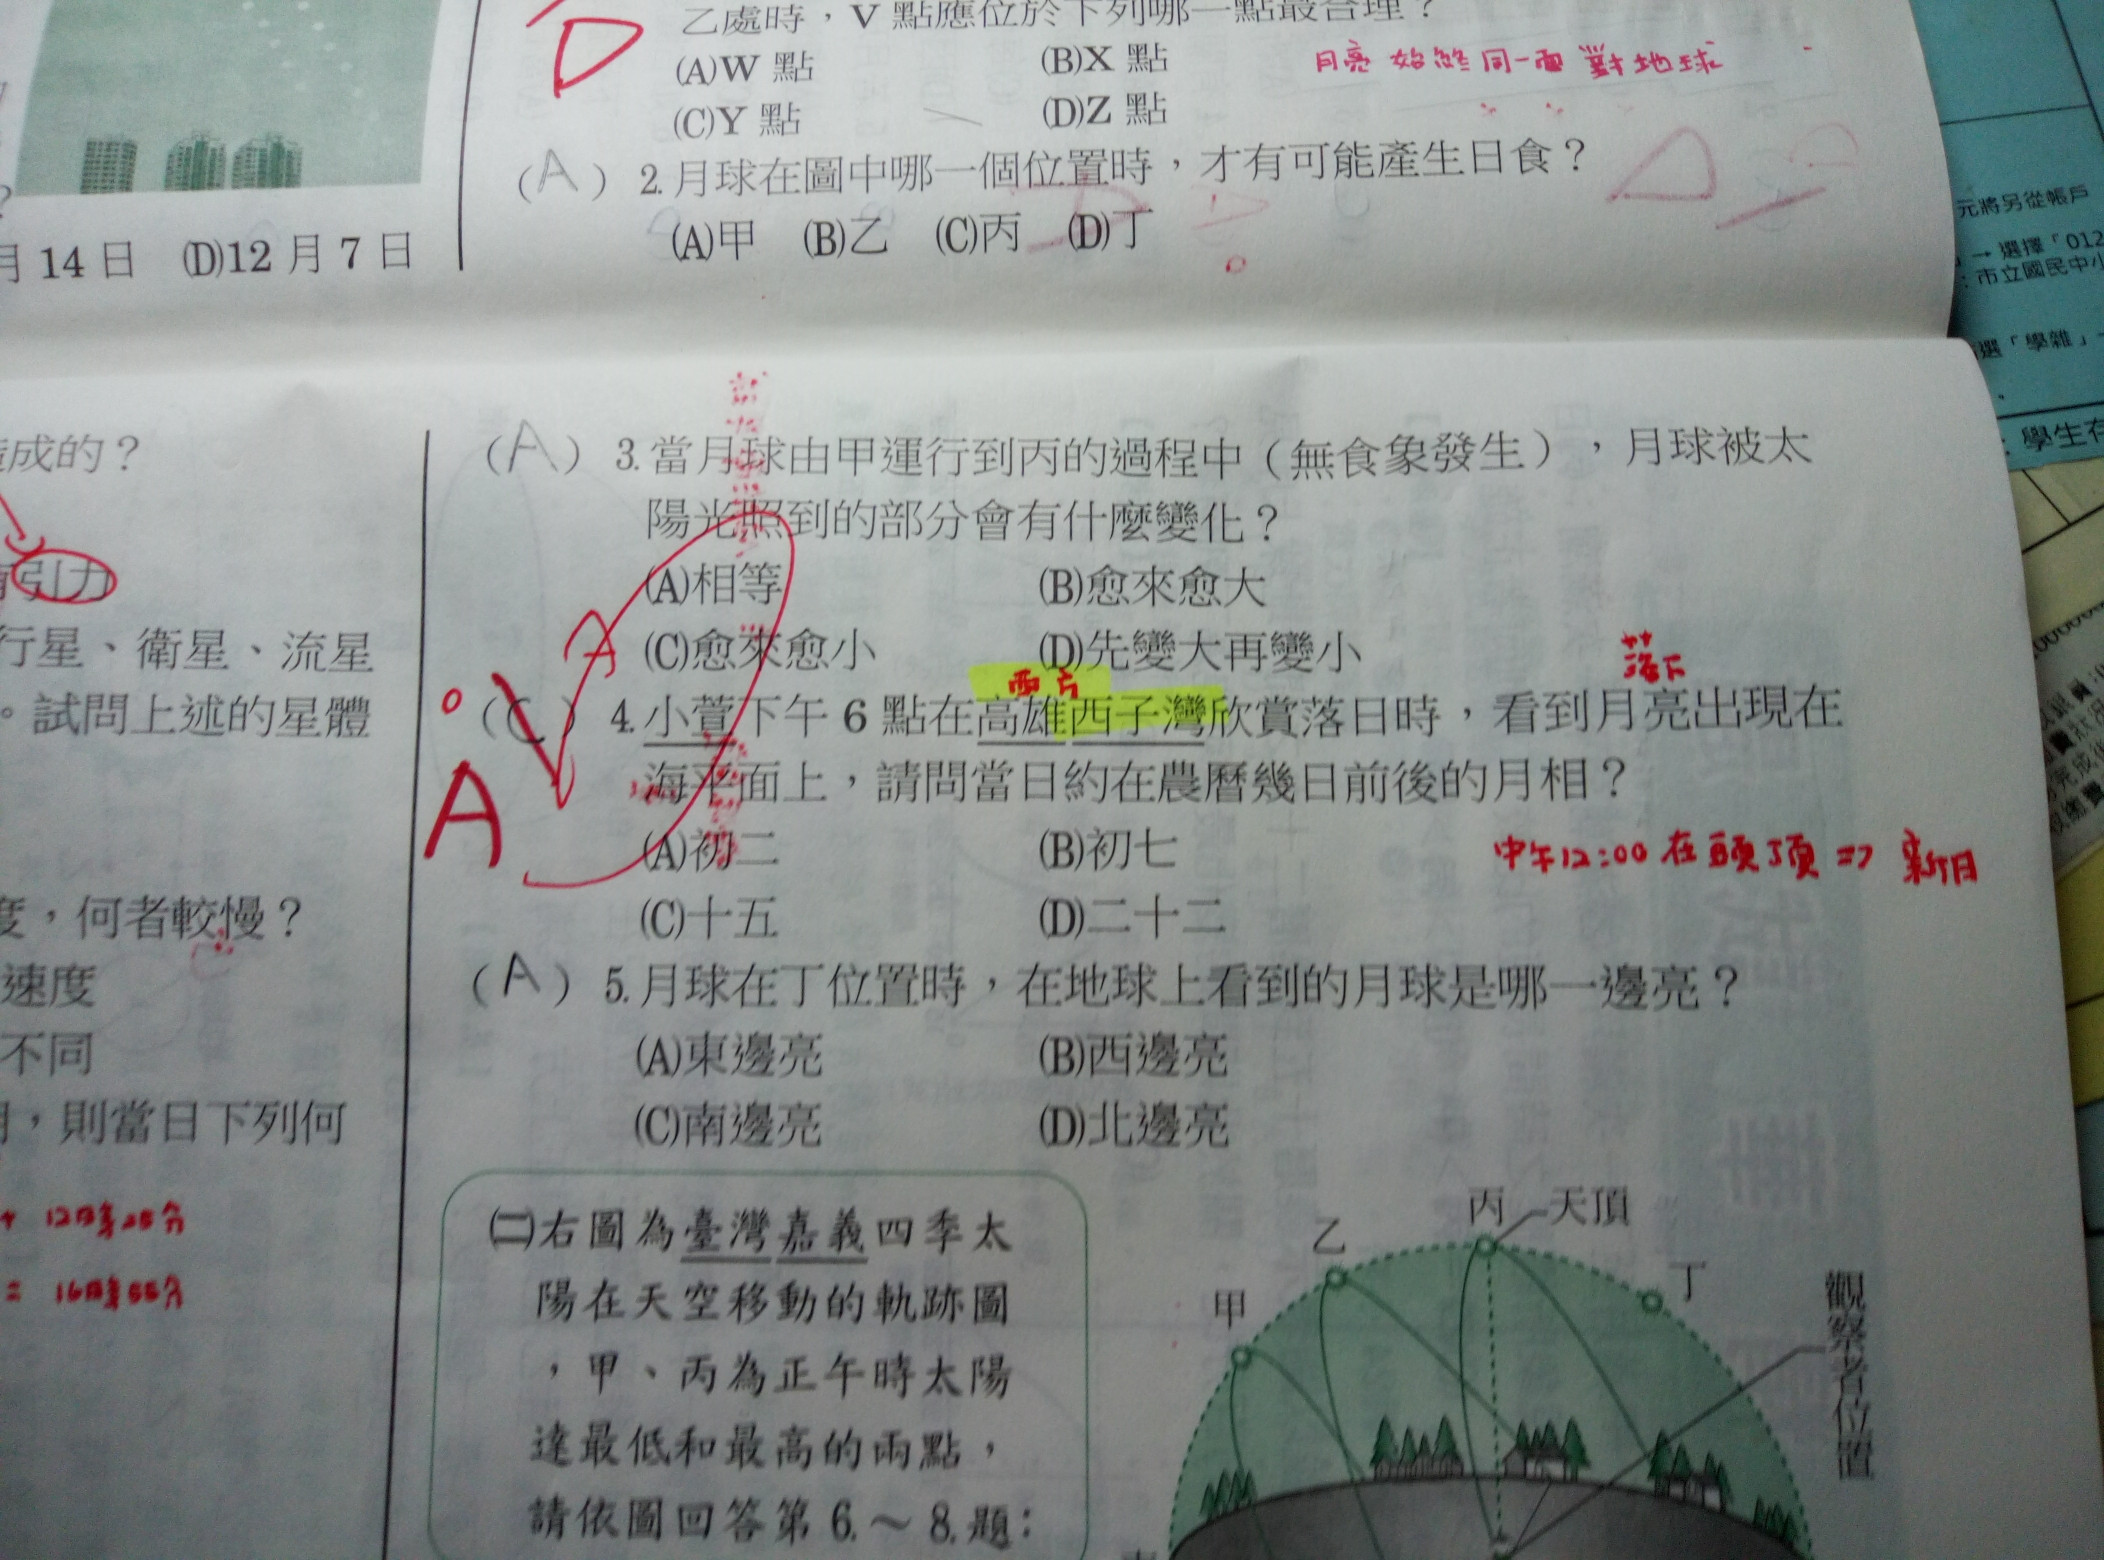 乙處時，V 點應位於下列哪一點最合理？
(A)W 點 (B)X 點
月亮 始終 同一面 對 地球
(C)Y 點 (D)Z 點
（A）2. 月球在圖中哪一個位置時，才有可能產生日食？
(A)甲 (B)乙 (C)丙 (D)丁
月 14 日 (D)12 月 7 日
元將另從帳戶
→ 選擇「012
市立國民中小
選「學雜」
學生在
成的？
引力
行星、衛星、流星
。試問上述的星體
度，何者較慢？
速度
不同
，則當日下列何
12時25分
= 16時55分
（A）3. 當月球由甲運行到丙的過程中（無食象發生），月球被太
陽光照到的部分會有什麼變化？
(A)相等 (B)愈來愈大
(C)愈來愈小 (D)先變大再變小
A
西方
落下
（C）4. 小萱下午 6 點在高雄西子灣欣賞落日時，看到月亮出現在
海平面上，請問當日約在農曆幾日前後的月相？
A
(A)初二 (B)初七
中午12:00 在頭頂 => 新月
(C)十五 (D)二十二
（A）5. 月球在丁位置時，在地球上看到的月球是哪一邊亮？
(A)東邊亮 (B)西邊亮
(C)南邊亮 (D)北邊亮
㈡右圖為臺灣嘉義四季太
陽在天空移動的軌跡圖
，甲、丙為正午時太陽
達最低和最高的兩點，
請依圖回答第 6.～ 8. 題：
丙 天頂
乙
丁
甲
觀察者位置